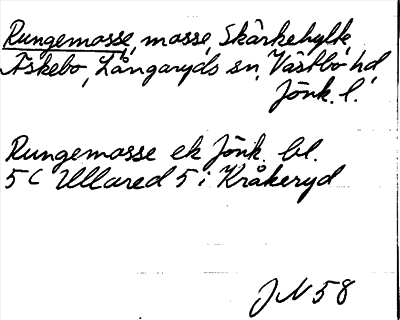 Rungemosse, mosse, Skärkehylte,
Askebo, Långaryds sn, Västbo hd,
Jönk. l.
Rungemosse ek Jönk. bl.
5 C Ullared 5 i Kråkeryd
JN 58